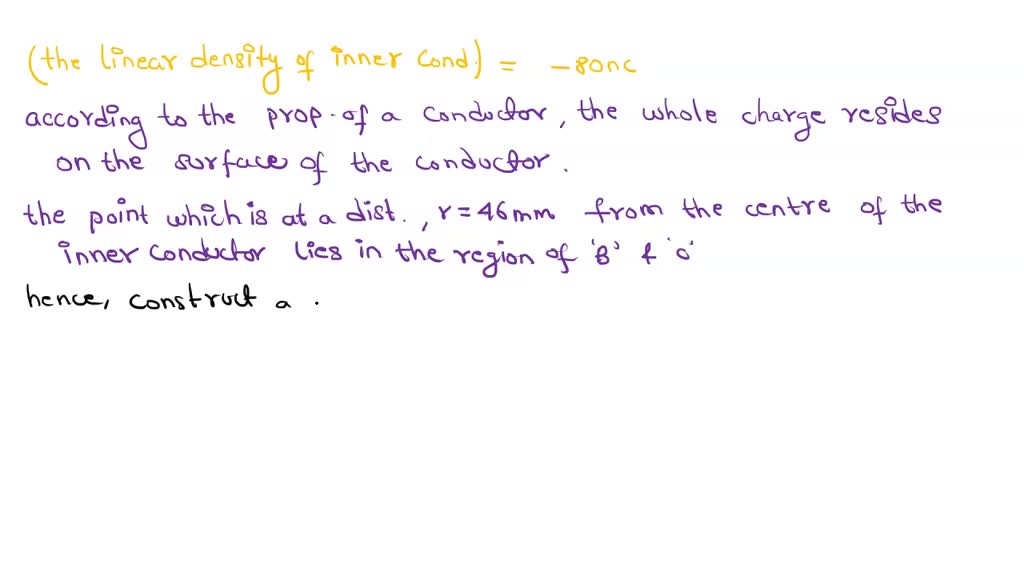 (the linear density of inner cond.) = -80nc
according to the prop. of a conductor, the whole charge resides
on the surface of the conductor.
the point which is at a dist., r = 46mm from the centre of the
inner conductor lies in the region of 'B' & 'o'
hence, construct a .